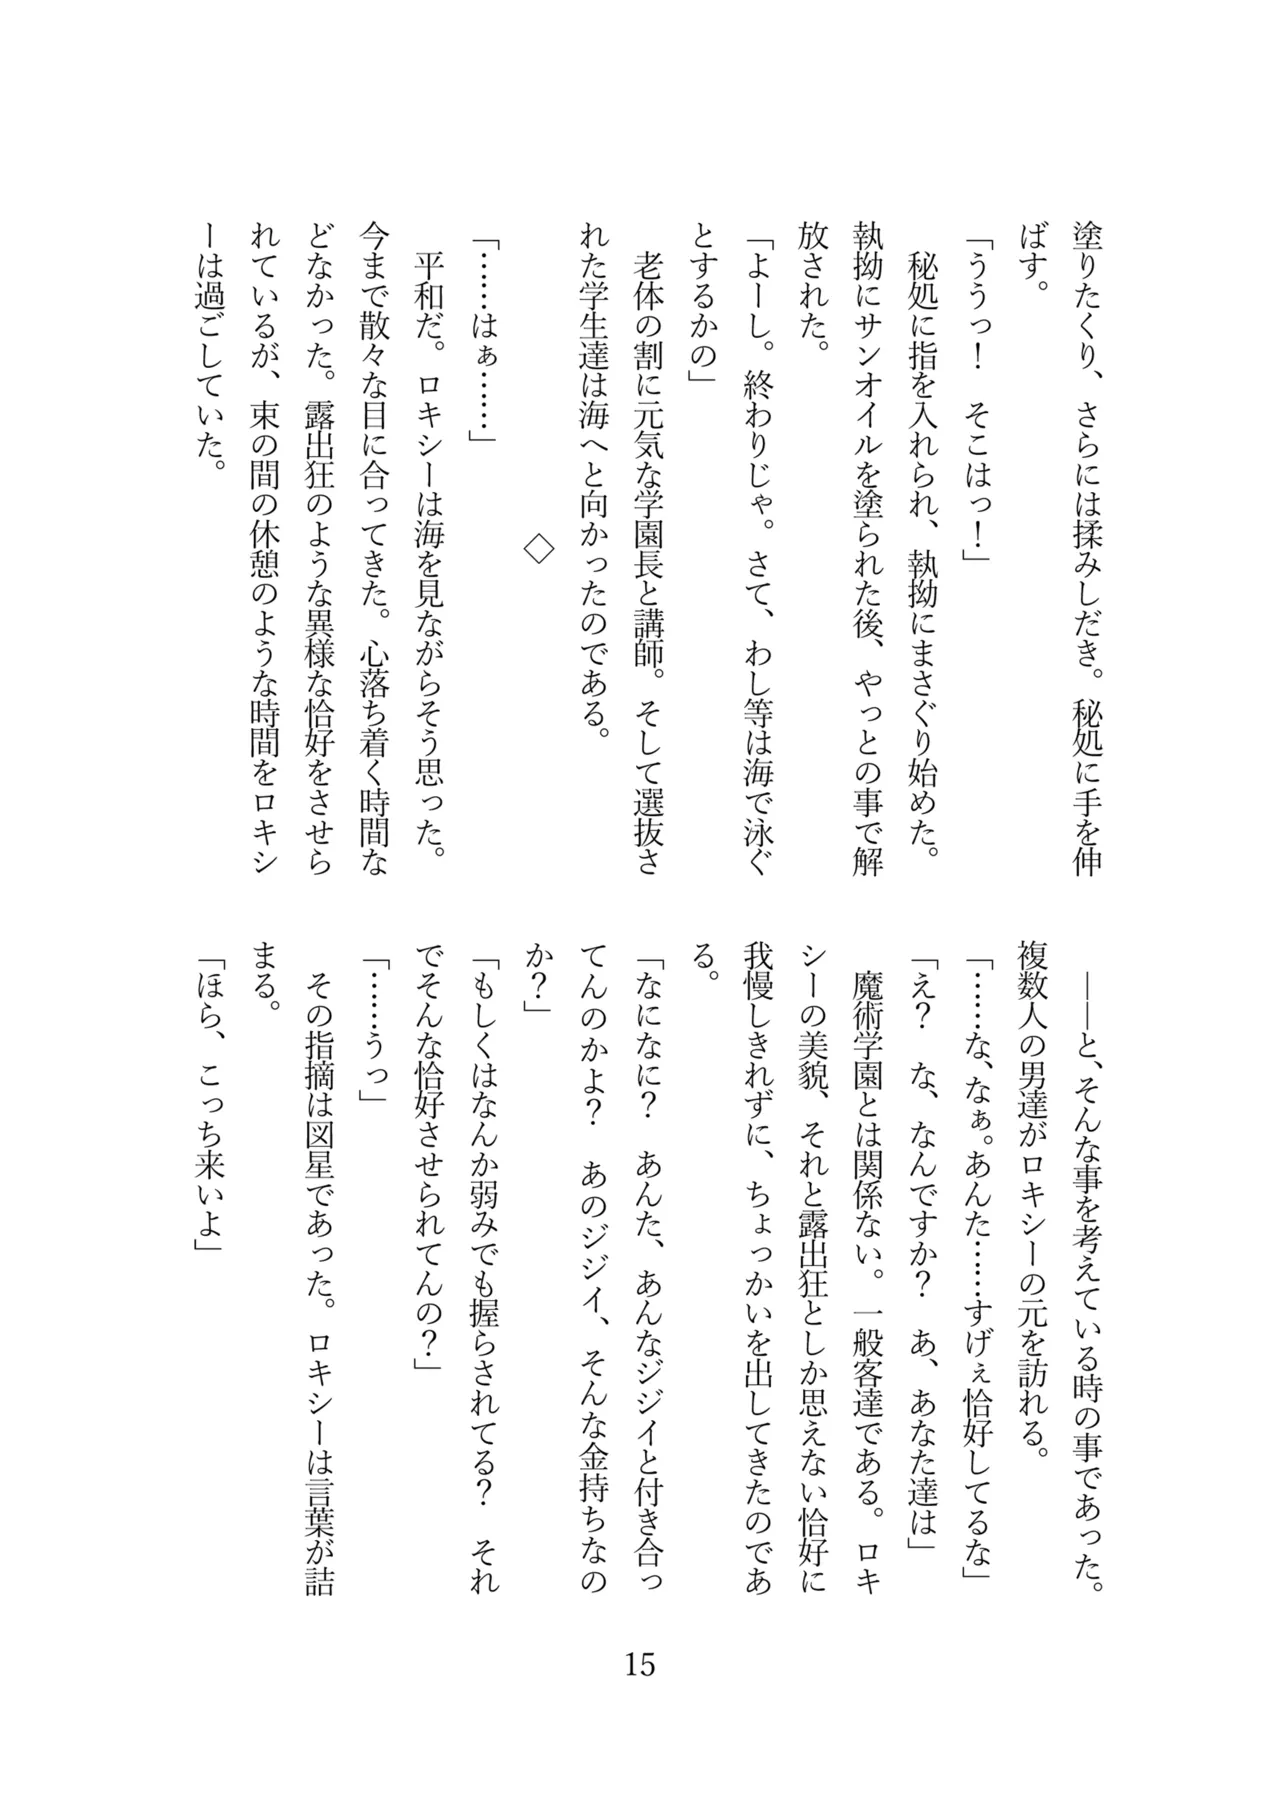 塗りたくり、さらには揉みしだき。秘処に手を伸
ばす。
「ううっ！　そこはっ！」
　秘処に指を入れられ、執拗にまさぐり始めた。
執拗にサンオイルを塗られた後、やっとの事で解
放された。
「よーし。終わりじゃ。さて、わし等は海で泳ぐ
とするかの」
　老体の割に元気な学園長と講師。そして選抜さ
れた学生達は海へと向かったのである。
◇
「……はぁ……」
　平和だ。ロキシーは海を見ながらそう思った。
今まで散々な目に合ってきた。心落ち着く時間な
どなかった。露出狂のような異様な恰好をさせら
れているが、束の間の休憩のような時間をロキシ
ーは過ごしていた。
　――と、そんな事を考えている時の事であった。
複数人の男達がロキシーの元を訪れる。
「……な、なぁ。あんた……すげぇ恰好してるな」
「え？　な、なんですか？　あ、あなた達は」
　魔術学園とは関係ない。一般客達である。ロキ
シーの美貌、それと露出狂としか思えない恰好に
我慢しきれずに、ちょっかいを出してきたのであ
る。
「なになに？　あんた、あんなジジイと付き合っ
てんのかよ？　あのジジイ、そんな金持ちなの
か？」
「もしくはなんか弱みでも握らされてる？　それ
でそんな恰好させられてんの？」
「……うっ」
　その指摘は図星であった。ロキシーは言葉が詰
まる。
「ほら、こっち来いよ」
15